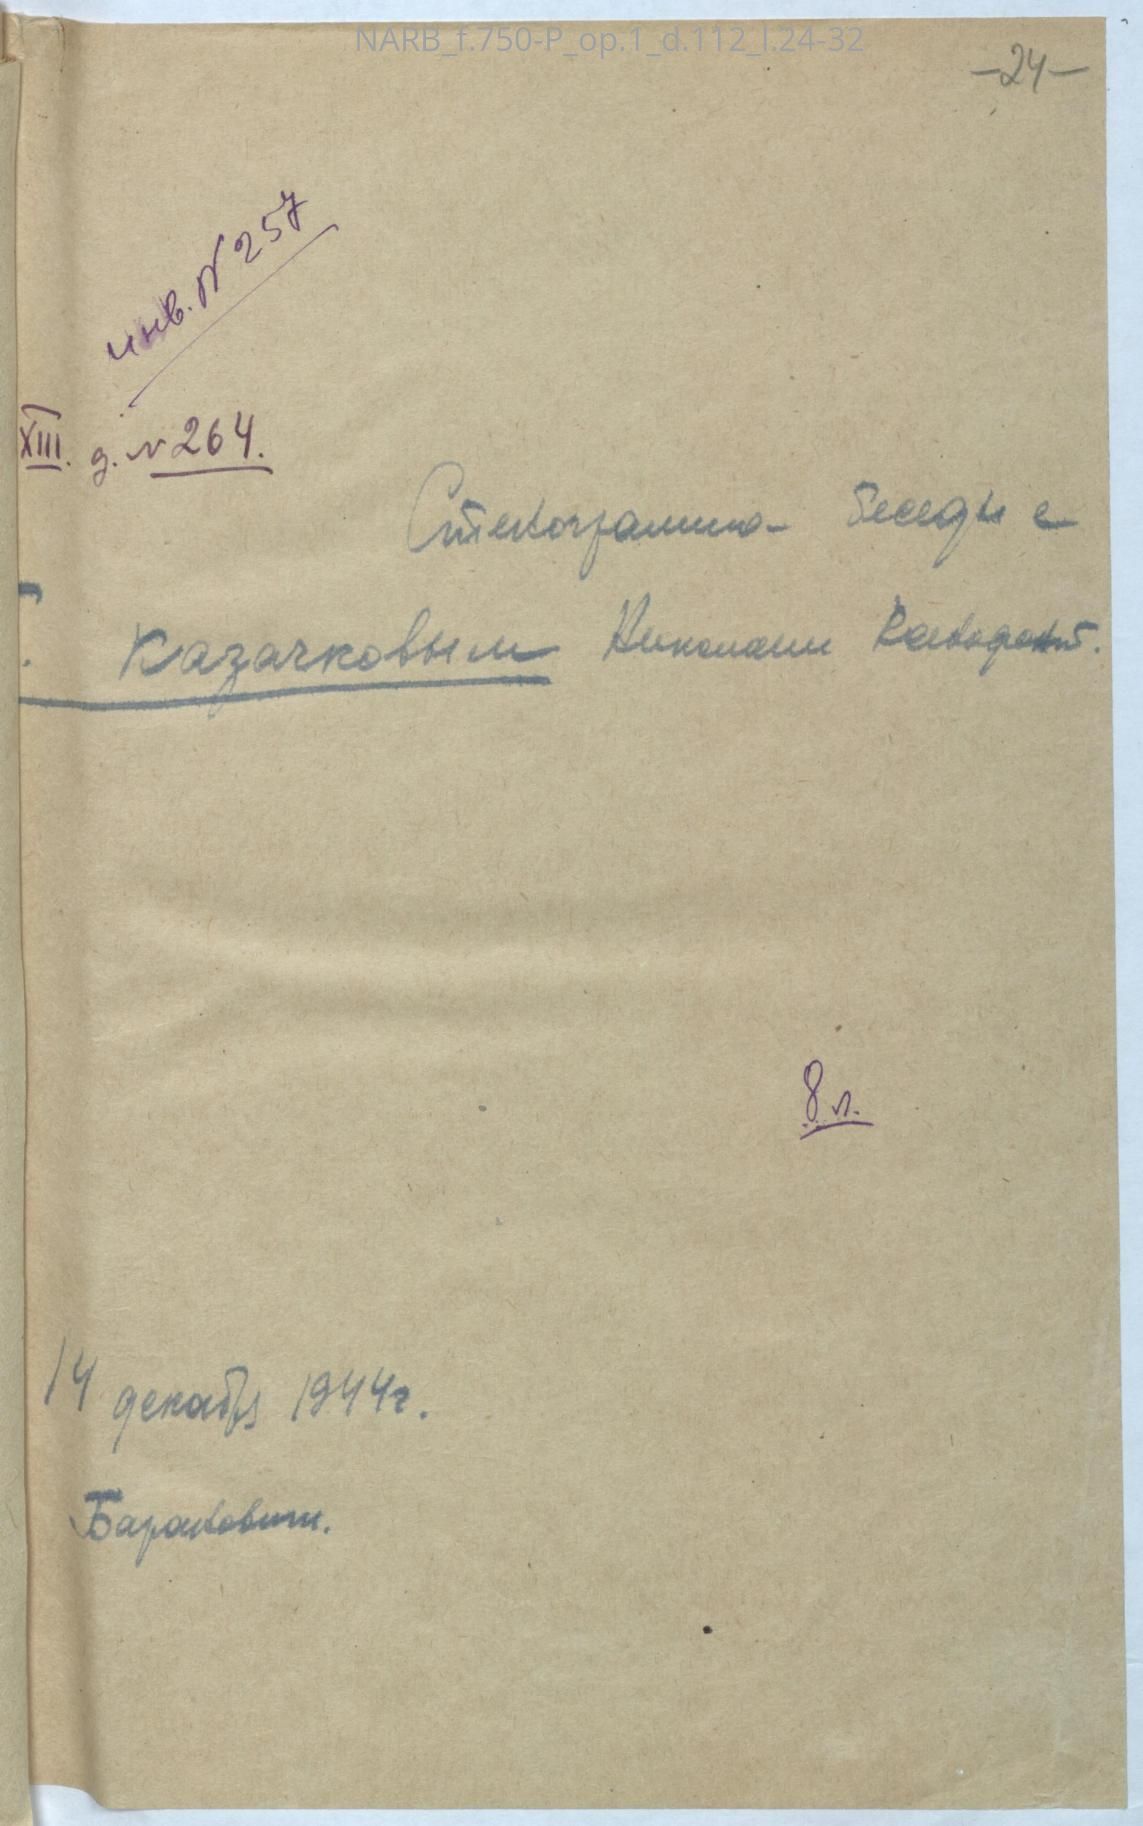 NARB_f.750-P_op.1_d.112_l.24-32
-24-
инв. N 257
XIII. д. N 264.
Стенограмма беседы с
Казачковым Николаем
8 л.
14 декабря 1944г.
Барановичи.